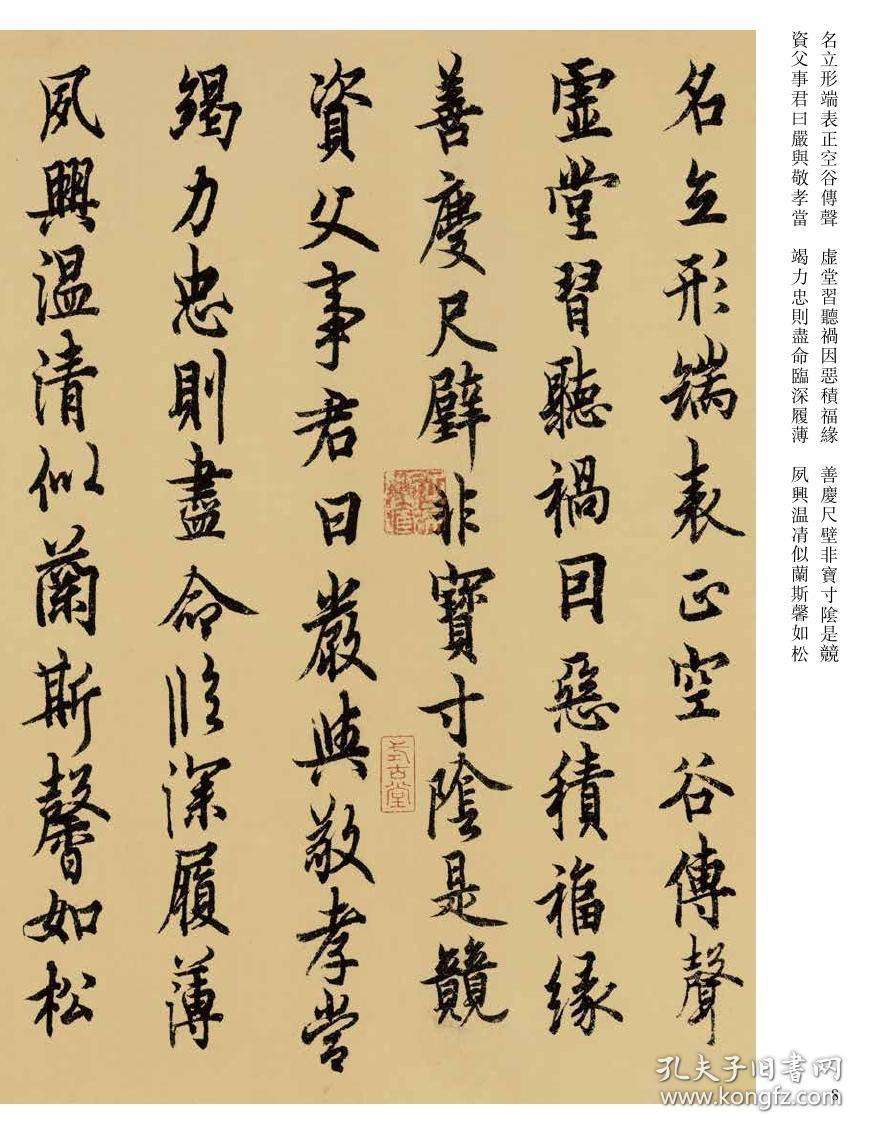 名立形端表正空谷傳聲　虛堂習聽禍因惡積福緣　善慶尺璧非寶寸陰是競
資父事君曰嚴與敬孝當　竭力忠則盡命臨深履薄　夙興温凊似蘭斯馨如松
名立形端表正空谷傳聲
虛堂習聽禍因惡積福緣
善慶尺璧非寶寸陰是競
資父事君曰嚴與敬孝當
竭力忠則盡命臨深履薄
夙興温清似蘭斯馨如松
孔夫子旧書网
www.kongfz.com
8